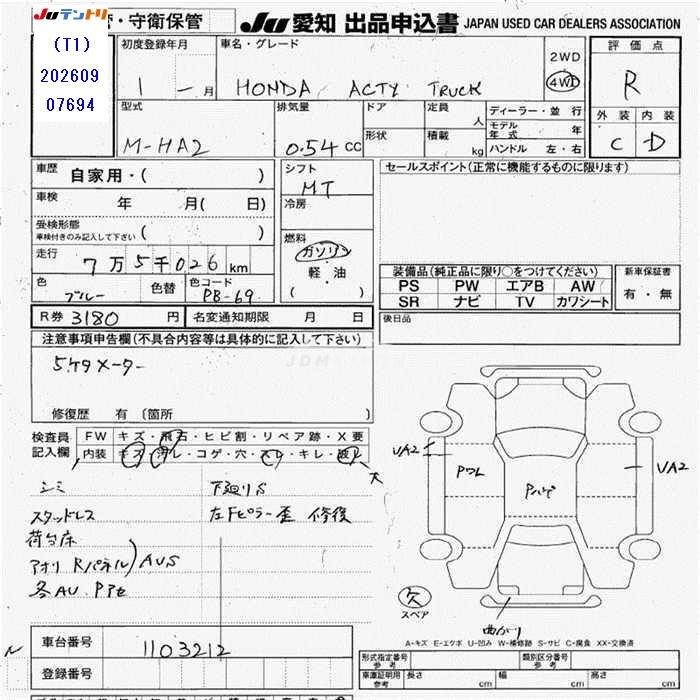 Juテントリ管・守衛保管 Ju愛知 出品申込書 JAPAN USED CAR DEALERS ASSOCIATION
(T1)
202609
07694
初度登録年月
1 ー 月
車名・グレード
HONDA ACTY TRUCK
2WD
4WD
評価点
R
型式
M-HA2
排気量
0.54 CC
ドア
形状
定員
人
積載
kg
ディーラー・並行
モデル年式 年
ハンドル 左・右
外装 内装
C D
車歴 自家用・( )
車検 年 月( 日)
受検形態
車検付きのみ記入して下さい ( )
走行 7万5千026km
色 ブルー 色替 色コード PB-69
シフト
MT
冷房
燃料
ガソリン
軽・油
( )
セールスポイント(正常に機能するものに限ります)
装備品(純正品に限り○をつけてください)
PS PW エアB AW
SR ナビ TV カワシート
新車保証書
有・無
R券 3180 円 名変通知期限 月 日
後日品
注意事項申告欄(不具合内容等は具体的に記入して下さい)
5ケタメーター
修復歴 有 (箇所 )
検査員記入欄
FW キズ・飛石・ヒビ割・リペア跡・X要
内装 キズ・汚レ・コゲ・穴・スレ・キレ・破レ 大
シミ
スタッドレス
荷台床
アオリ Rパネル)AUS
各AU.Pアセ
下廻りS
左Fピラー歪 修復
VA2
PワL
Pハゲ
VA2
欠
スペア
曲がり
A-キズ E-エクボ U-凹み W-補修跡 S-サビ C-腐食 XX-交換済
車台番号 1103212
登録番号
形式指定番号
参考
類別区分番号
参考
車庫証明用
参考
長さ cm 幅 cm 高さ cm